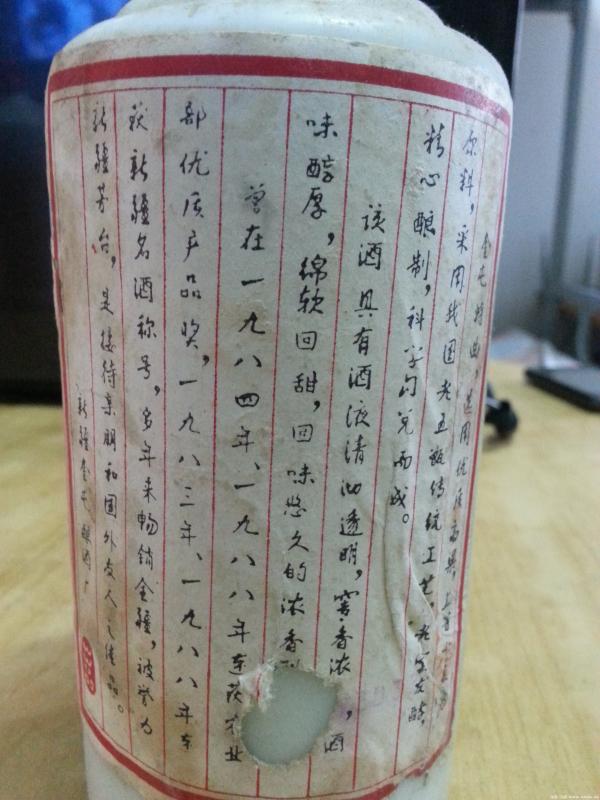 金屯特曲，选用优质高粱、
原料，采用我国老五甑传统工艺，老窖发酵，
精心酿制，科学勾兑而成。
该酒具有酒液清沏透明，窖香浓，酒
味醇厚，绵软回甜，回味悠久的浓香
曾在一九八四年、一九八八年连获农业
部优质产品奖，一九八三年、一九八八年
获新疆名酒称号，多年来畅销全疆，被誉为
新疆茅台，是接待亲朋和国外友人之佳品。
新疆金屯酿酒厂